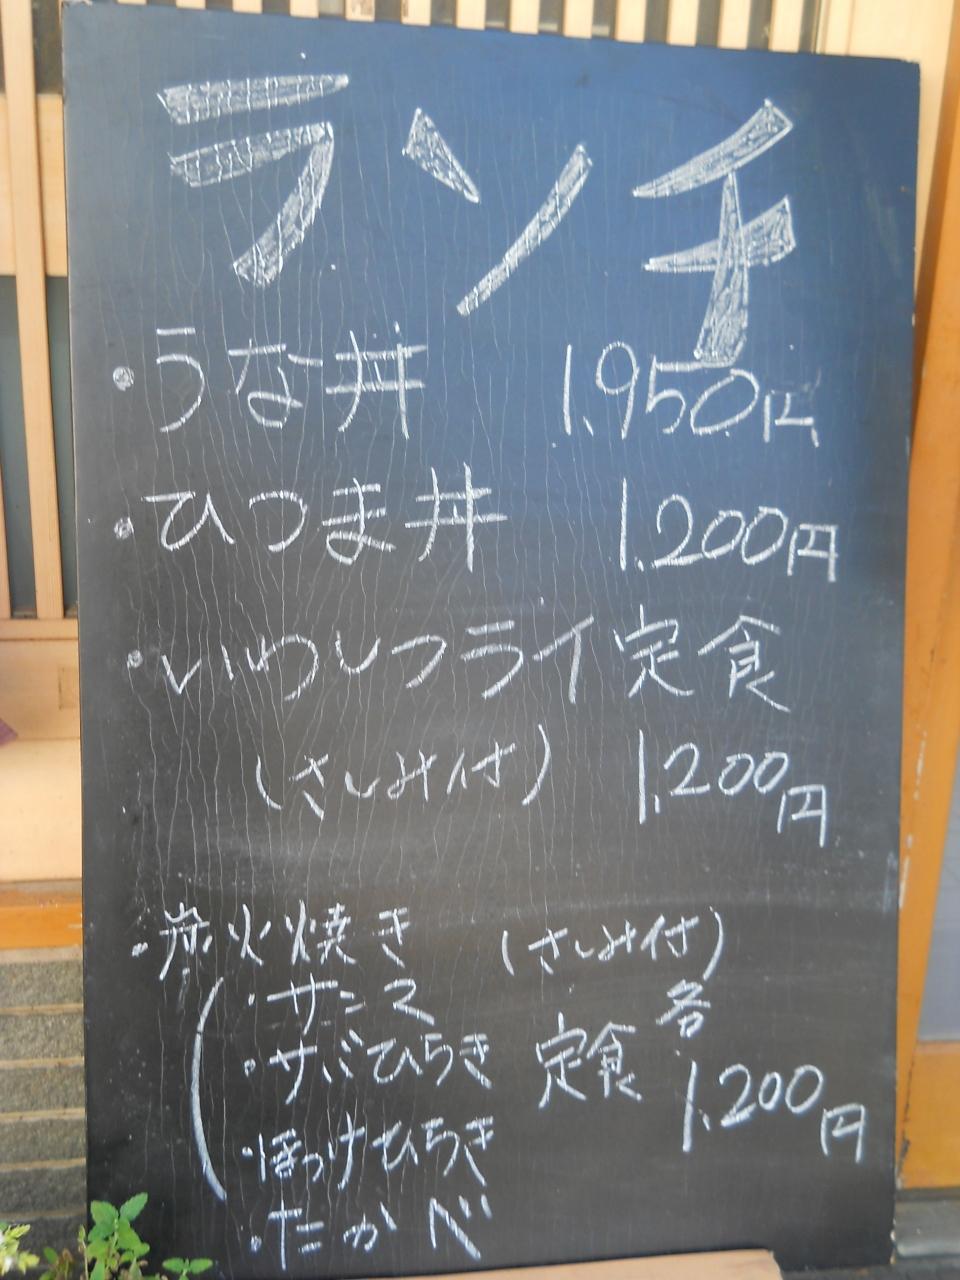 ランチ
・うな丼 1,950円
・ひつま丼 1,200円
・いわしフライ定食
(さしみ付) 1,200円
・炭火焼き (さしみ付)
・サンマ
・サバひらき 定食 各1,200円
・ほっけひらき
・たかべ